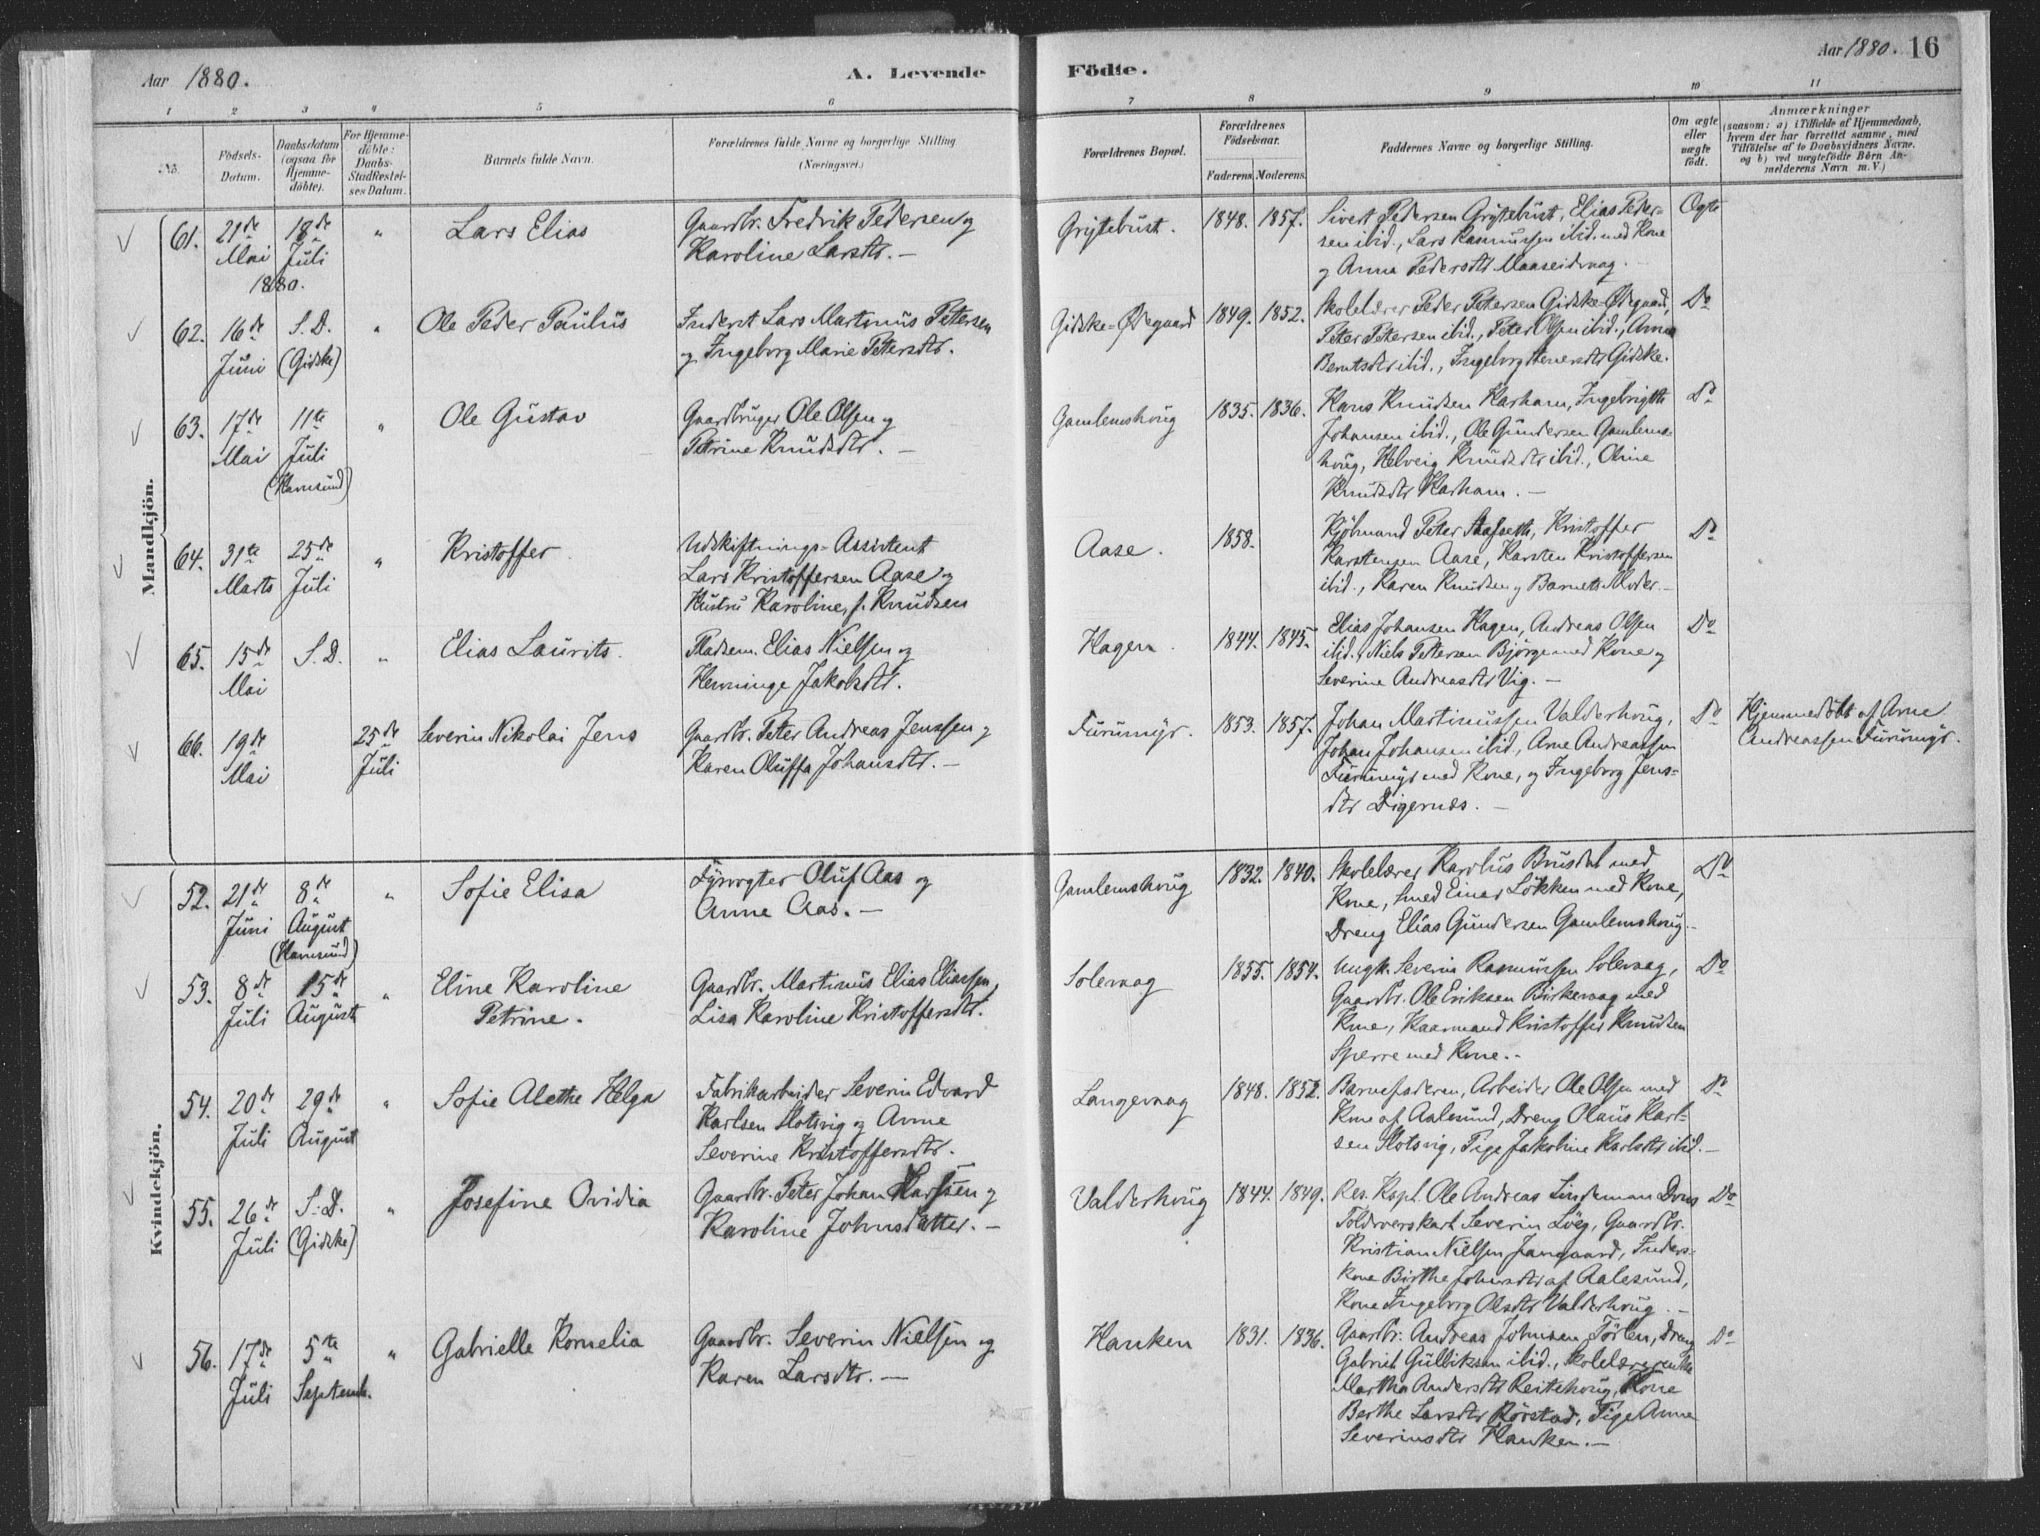 Aar 1880.
A. Levende
Födte.
Aar 1880. 16
1 2 3 4 5 6 7 8 9 10 11
No.
Födsels-
Datum.
Daabsdatum
(ogsaa for
Hjemme-
döbte).
For Hjemme-
döbte:
Daabs-
Stadfæstel-
ses Datum.
Barnets fulde Navn.
Forældrenes fulde Navne og borgerlige Stilling
(Næringsvei.)
Forældrenes Bopæl.
Forældrenes
Födselsaar.
Faderens. Moderens.
Faddernes Navne og borgerlige Stilling.
Om ægte
eller
uægte
födt.
Anmærkninger
(saasom: a) i Tilfælde af Hjemmedaab,
hvem der har forrettet samme, med
Tilföielse af to Daabsvidners Navne,
og b) ved uægtefödte Börn An-
melderens Navn m. V.)
Mandkjön.
61.
21de
Mai
18de
Juli
1880.
"
Lars Elias
Gaardbr. Fredrik Pedersen og
Karoline Larsdtr. —
Grytebust.
1848. 1857.
Sivert Pedersen Grytebust, Elias Peder-
sen ibid., Lars Rasmussen ibid. med Kone
og Anna Pedersdtr Maaseidvaag.
Ægte
62.
16de
Juni
S. D.
(Gidske)
"
Ole Peder Paulus
Inderst Lars Martinus Pettersen
og Ingeborg Marie Petersdtr.
Gidske-Ødegaard
1849. 1852.
Skolelærer Peder Petersen Gidske-Ødegaard,
Peter Petersen ibid., Peter Olsen ibid., Anna
Berntsdtr ibid., Ingeborg Stenersdtr Gidske.
Do
63.
17de
Mai
11te
Juli
(Havnsund)
"
Ole Gustav
Gaardbruger Ole Olsen og
Petrine Knudsdtr. —
Gamlemshoug
1835. 1836.
Hans Knudsen Harham, Ingebrigth
Johansen ibid., Ole Gundersen Gamlems-
houg, Helveig Knudsdtr ibid., Oline
Knudsdtr Harham. —
Do
64.
31te
Marts
25de
Juli
"
Kristoffer
Udskiftnings-Assistent
Lars Kristoffersen Aase og
Hustru Karoline, f. Knudsen
Aase.
1858.
Kjöbmand Peter Stafseth, Kristoffer
Karstensen Aase, Karsten Kristoffersen
ibid., Karen Knudsen og Barnets Moder. —
Do
65.
15de
Mai
S. D.
"
Elias Laurits.
Pladsem. Elias Nielsen og
Henninge Jakobsdtr.
Hagen
1844. 1845.
Elias Johansen Hagen, Andreas Olsen
ibid., Niels Pettersen Bjørge med Kone og
Severine Andreasdtr Vig. —
Do
66.
19de
Mai
25de
Juli
Severin Nikolai Jens
Gaardbr. Peter Andreas Jenssen og
Karen Oluffa Johansdtr. —
Furumyr.
1853. 1857.
Johan Martinussen Valderhoug,
Johan Johansen ibid., Arne Andreassen
Furumyr med Kone, og Ingeborg Jens-
dtr Digernes. —
Do
Hjemmedöbt af Arne
Andreassen Furumyr.
Kvindekjön.
52.
21de
Juni
8de
August
(Havnsund)
"
Sofie Elisa
Fyrvogter Oluf Aas og
Anne Aas. —
Gamlemshoug
1832. 1840.
Skolelærer Karolus Brusdal med
Kone, Smed Einar Løkken med Kone,
Dreng Elias Gundersen Gamlemshoug. —
Do
53.
8de
Juli
15de
August
"
Eline Karoline
Petrine.
Gaardbr. Martinus Elias Eliassen,
Lisa Karoline Kristoffersdtr.
Solevaag
1855. 1854.
Ungk. Severin Rasmussen Solevaag,
Gaardbr. Ole Eriksen Birkevaag med
Kone, Kaarmand Kristoffer Knudsen
Sperre med Kone. —
Do
54.
20de
Juli
29de
August
"
Sofie Alethe Helga
Fabrikarbeider Severin Edvard
Karlsen Slotsvig og Anne
Severine Kristoffersdtr.
Langevaag
1848. 1852.
Barnefaderen, Arbeider Ole Olsen med
Kone af Aalesund, Dreng Olaus Karl-
sen Slotsvig, Pige Jakoline Karlsdtr ibid. —
Do
55.
26de
Juli
S. D.
(Gidske)
"
Josefine Ovidia
Gaardbr. Peter Johan Larssen og
Karoline Johnsdatter. —
Valderhoug
1844. 1849.
Res. Kapl. Ole Andreas Lindeman
Toldroerskarl Severin Löeg, Gaardbr.
Kristian Nielsen Jangaard, Inders-
kone Birthe Johnsdtr af Aalesund,
Kone Ingeborg Olsdtr Valderhoug. —
Do
56.
17de
Juli
5te
Septemb.
"
Gabrielle Kornelia
Gaardbr. Severin Nielsen og
Karen Larsdtr. —
Hanken
1831. 1836.
Gaardbr. Andreas Johnsen Törlen, Dreng
Gabriel Gulliksen ibid., Skolelærerenke
Martha Andersdtr Reitehoug, Kone
Berthe Larsdtr Rörstad, Pige Anne
Severinsdtr Hanken. —
Do